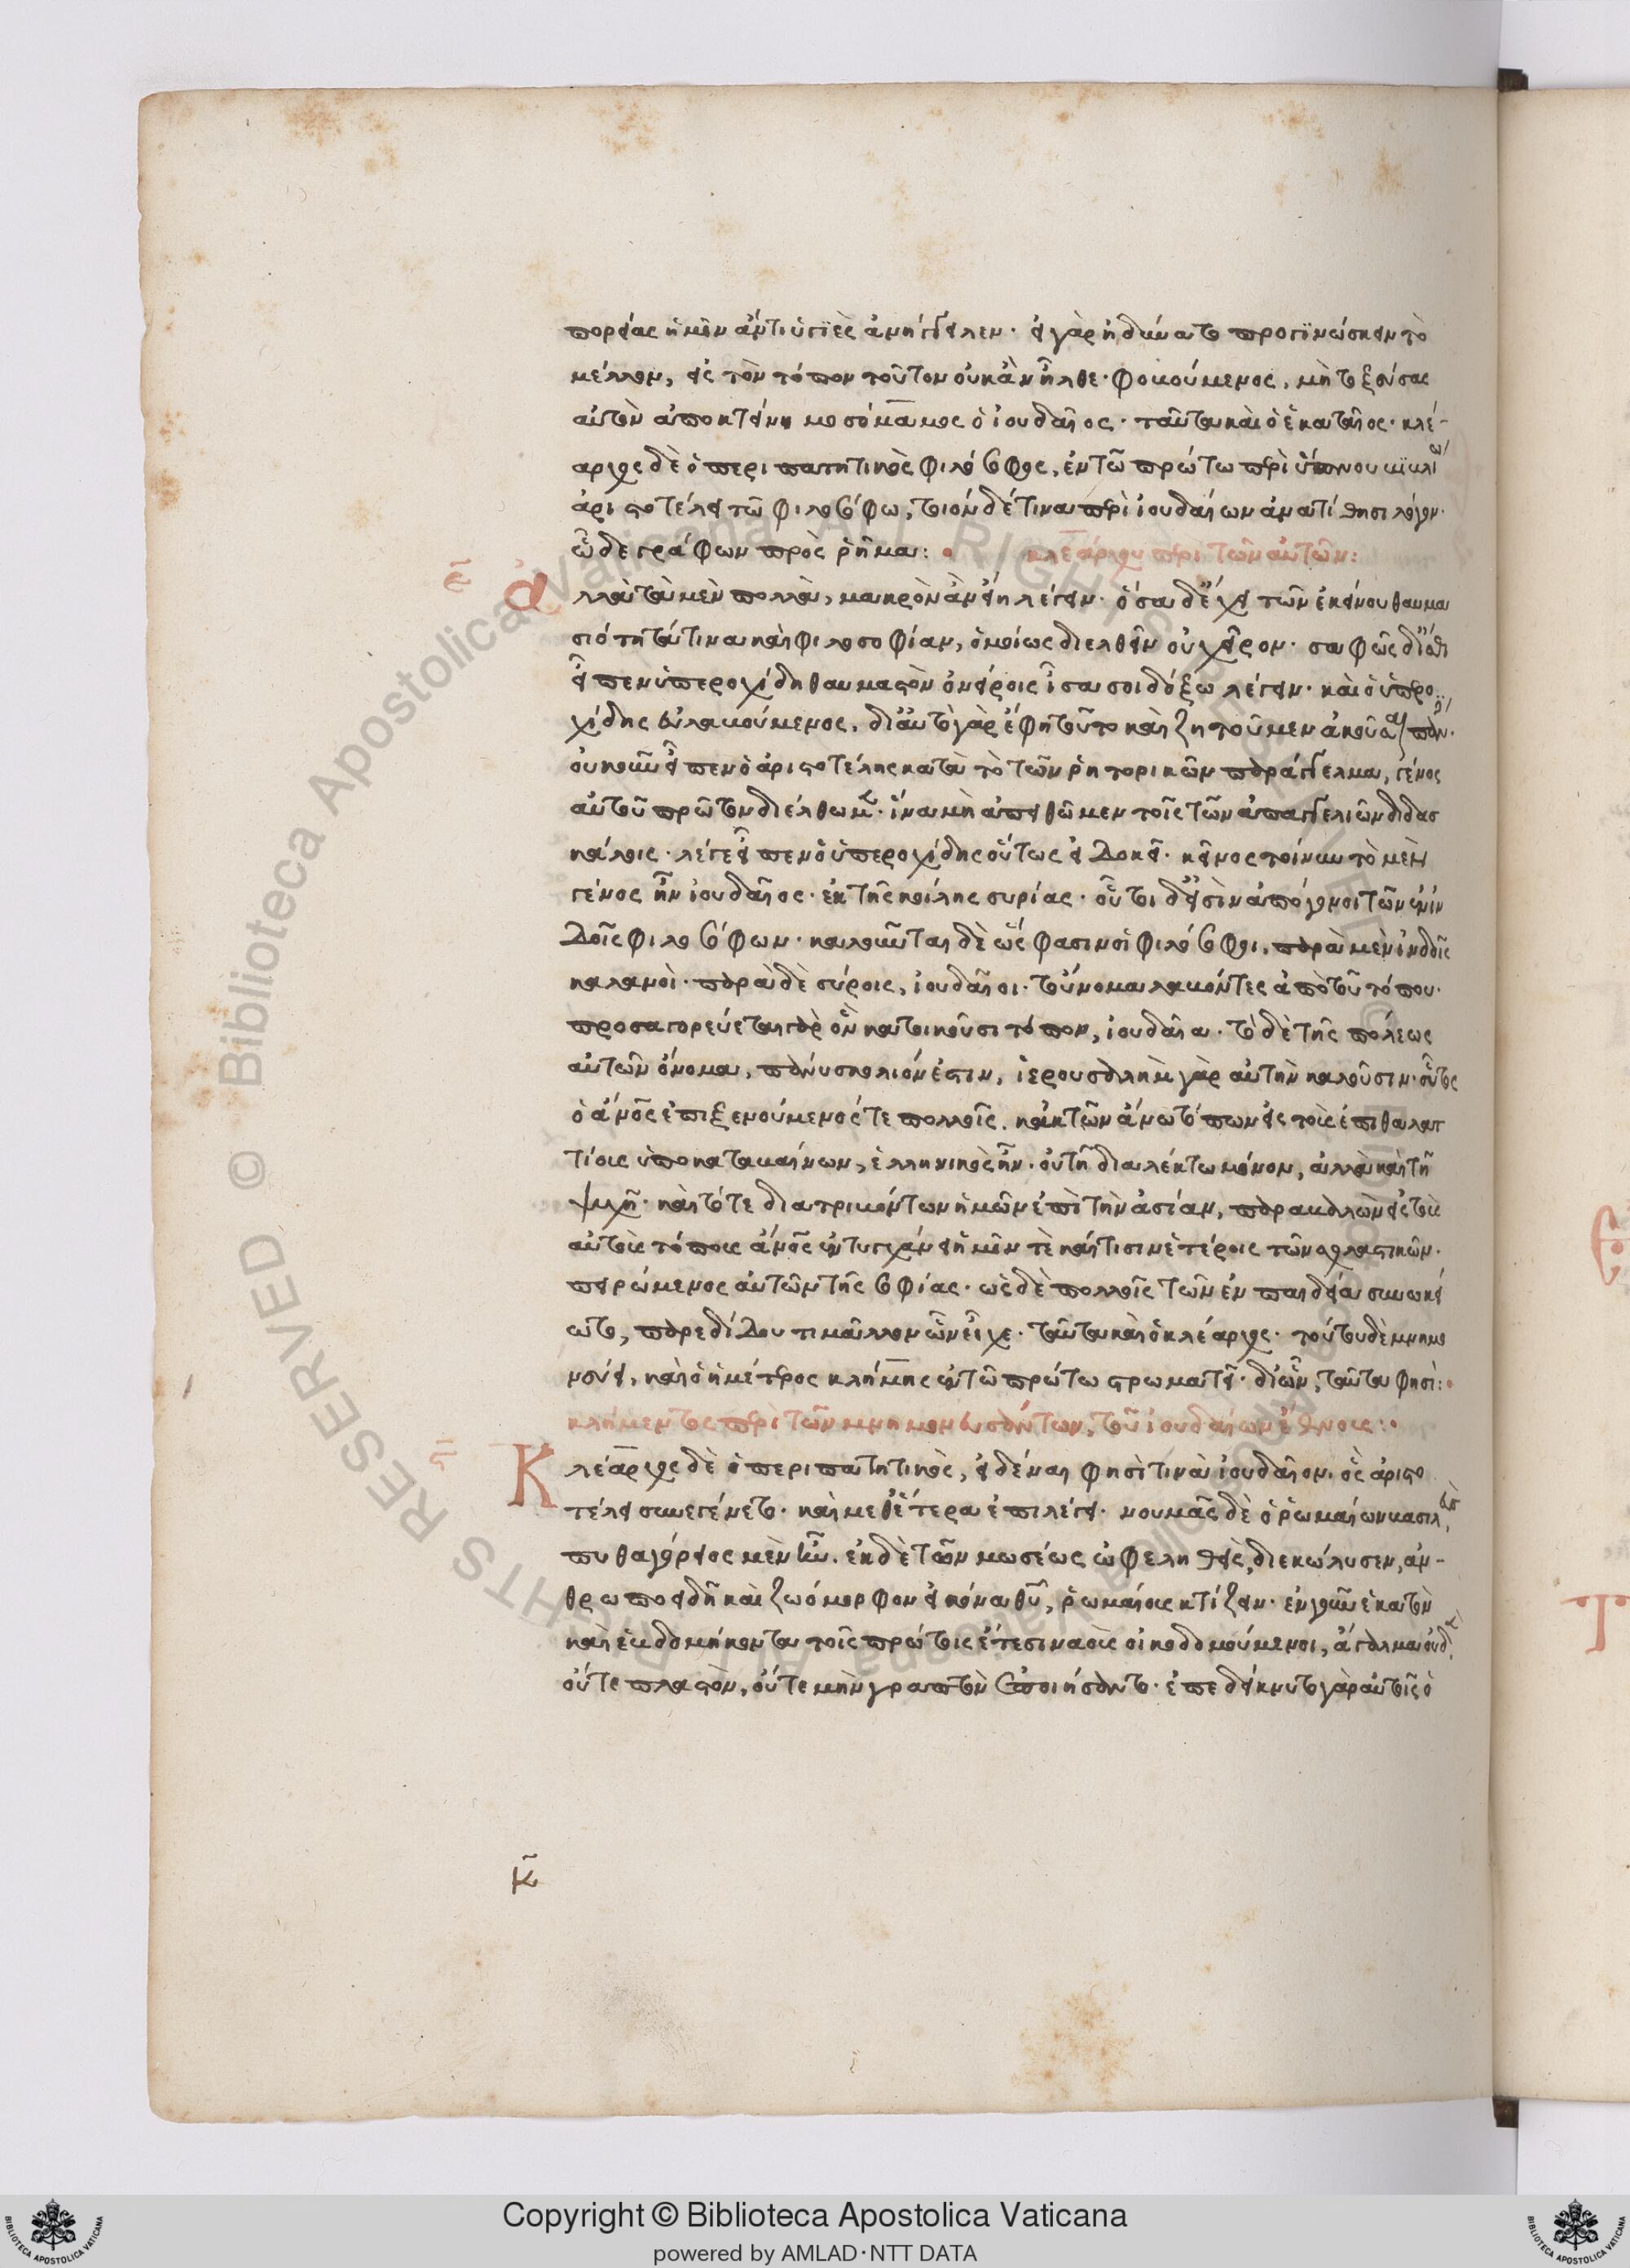 πορείας ἡμῖν ἄν τι ὑγιὲς ἀνήγγειλεν· εἰ γὰρ ἠδύνατο προγινώσκειν τὸ
μέλλον, εἰς τὸν τόπον τοῦτον οὐκ ἂν ἦλθε· φοβούμενος, μὴ τοξεύσας
αὐτὸν ἀποκτείνῃ μοσόμαμος ὁ ἰουδαῖος· ταῦτα καὶ ὁ ἑκαταῖος· κλέ-
αρχος δὲ ὁ περιπατητικὸς φιλόσοφος, ἐν τῷ πρώτῳ περὶ ὕπνου βιβλίῳ
ἀριστοτέλει τῷ φιλοσόφῳ, τοιόνδέ τινα περὶ ἰουδαίων ἀνατίθησι λόγον·
ὧδε γράφων πρὸς ῥῆμα: κλεάρχου περὶ τῶν αὐτῶν:
ε ἀλλὰ τὰ μὲν πολλὰ, μακρὸν ἂν εἴη λέγειν· ὅσα δ' ἔχει τῶν ἐκείνου θαυμα
σιότητά τινα καὶ φιλοσοφίαν, ὁμοίως διελθεῖν οὐ χεῖρον· σαφῶς δ' ἴσθι
εἶπεν ὑπεροχίδη θαυμαστὸν ὀνείροις ἶσα σοι δόξω λέγειν· καὶ ὁ ὑπερο
χίδης εὐλαβούμενος, δι' αὐτὸ γὰρ ἔφη τοῦτο καὶ ζητοῦμεν ἀκοῦσαι πάν.
οὐκοῦν εἶπεν ὁ ἀριστοτέλης κατὰ τὸ τῶν ῥητορικῶν παράγγελμα, γένος
αὐτοῦ πρῶτον διέλθωμεν· ἵνα μὴ ἀπειθῶμεν τοῖς τῶν ἀπαγγελιῶν διδασ
κάλοις· λέγε εἶπεν ὁ ὑπεροχίδης οὕτως εἰ δοκεῖ· κεῖνος τοίνυν τὸ μὲν
γένος ἦν ἰουδαῖος· ἐκ τῆς κοίλης συρίας· οὗτοι δ' εἰσὶν ἀπόγονοι τῶν ἐν ἰν
δοῖς φιλοσόφων· καλοῦνται δὲ ὥς φασιν οἱ φιλόσοφοι, παρὰ μὲν ἰνδοῖς
καλανοὶ· παρὰ δὲ σύροις, ἰουδαῖοι· τοὔνομα λαβόντες ἀπὸ τοῦ τόπου·
προσαγορεύεται γὰρ ὃν κατοικοῦσι τόπον, ἰουδαία· τὸ δὲ τῆς πόλεως
αὐτῶν ὄνομα, πάνυ σκολιόν ἐστιν, ἱερουσαλὴμ γὰρ αὐτὴν καλοῦσιν· οὗτος
ὁ ἄνος ἐπιξενούμενός τε πολλοῖς. κἀκ τῶν ἄνω τόπων εἰς τοὺς ἐπιθαλατ
τίους ὑποκαταβαίνων, ἑλληνικὸς ἦν· οὐ τῇ διαλέκτῳ μόνον, ἀλλὰ καὶ τῇ
ψυχῇ· καὶ τότε διατριβόντων ἡμῶν ἐπὶ τὴν ἀσίαν, παραβαλὼν εἰς τοὺς
αὐτοὺς τόπους ἄνος ἐντυγχάνει ἡμῖν τὲ καί τισιν ἑτέροις τῶν σχολαστικῶν.
πειρώμενος αὐτῶν τῆς σοφίας· ὡς δὲ πολλοῖς τῶν ἐν παιδείᾳ συνῳκεί
ωτο, παρεδίδου τι μᾶλλον ὧν εἶχε· ταῦτα καὶ ὁ κλέαρχος· τούτου δὲ μνημο
νεύει, καὶ ὁ ἡμέτερος κλήμης ἐν τῷ πρώτῳ στρωματεῖ· δι' ὧν, ταῦτα φησί:
κλήμεντος περὶ τῶν μνημονευσάντων, τοῦ ἰουδαίων ἔθνους:
ς Κλέαρχος δὲ ὁ περιπατητικὸς, εἰδέναι φησί τινὰ ἰουδαῖον. ὃς ἀριστο
τέλει συνεγένετο· καὶ μεθ' ἕτερα ἐπιλέγει· νουμᾶς δὲ ὁ ῥωμαίων βασιλεὺς,
πυθαγόρειος μὲν ἦν. ἐκ δὲ τῶν μωσέως ὠφεληθεὶς, διεκώλυσεν, ἀν-
θρωποειδῆ καὶ ζωόμορφον εἰκόνα θυ, ῥωμαίους κτίζειν· ἐν γοῦν ἑκατὸν
καὶ ἑβδομήκοντα τοῖς πρώτοις ἔτεσι ναοὺς οἰκοδομούμενοι, ἄγαλμα οὐδὲν
οὔτε πλαστὸν, οὔτε μὴν γραπτὸν ἐποιήσαντο· ἐπεδείκνυτο γὰρ αὐτοῖς ὁ